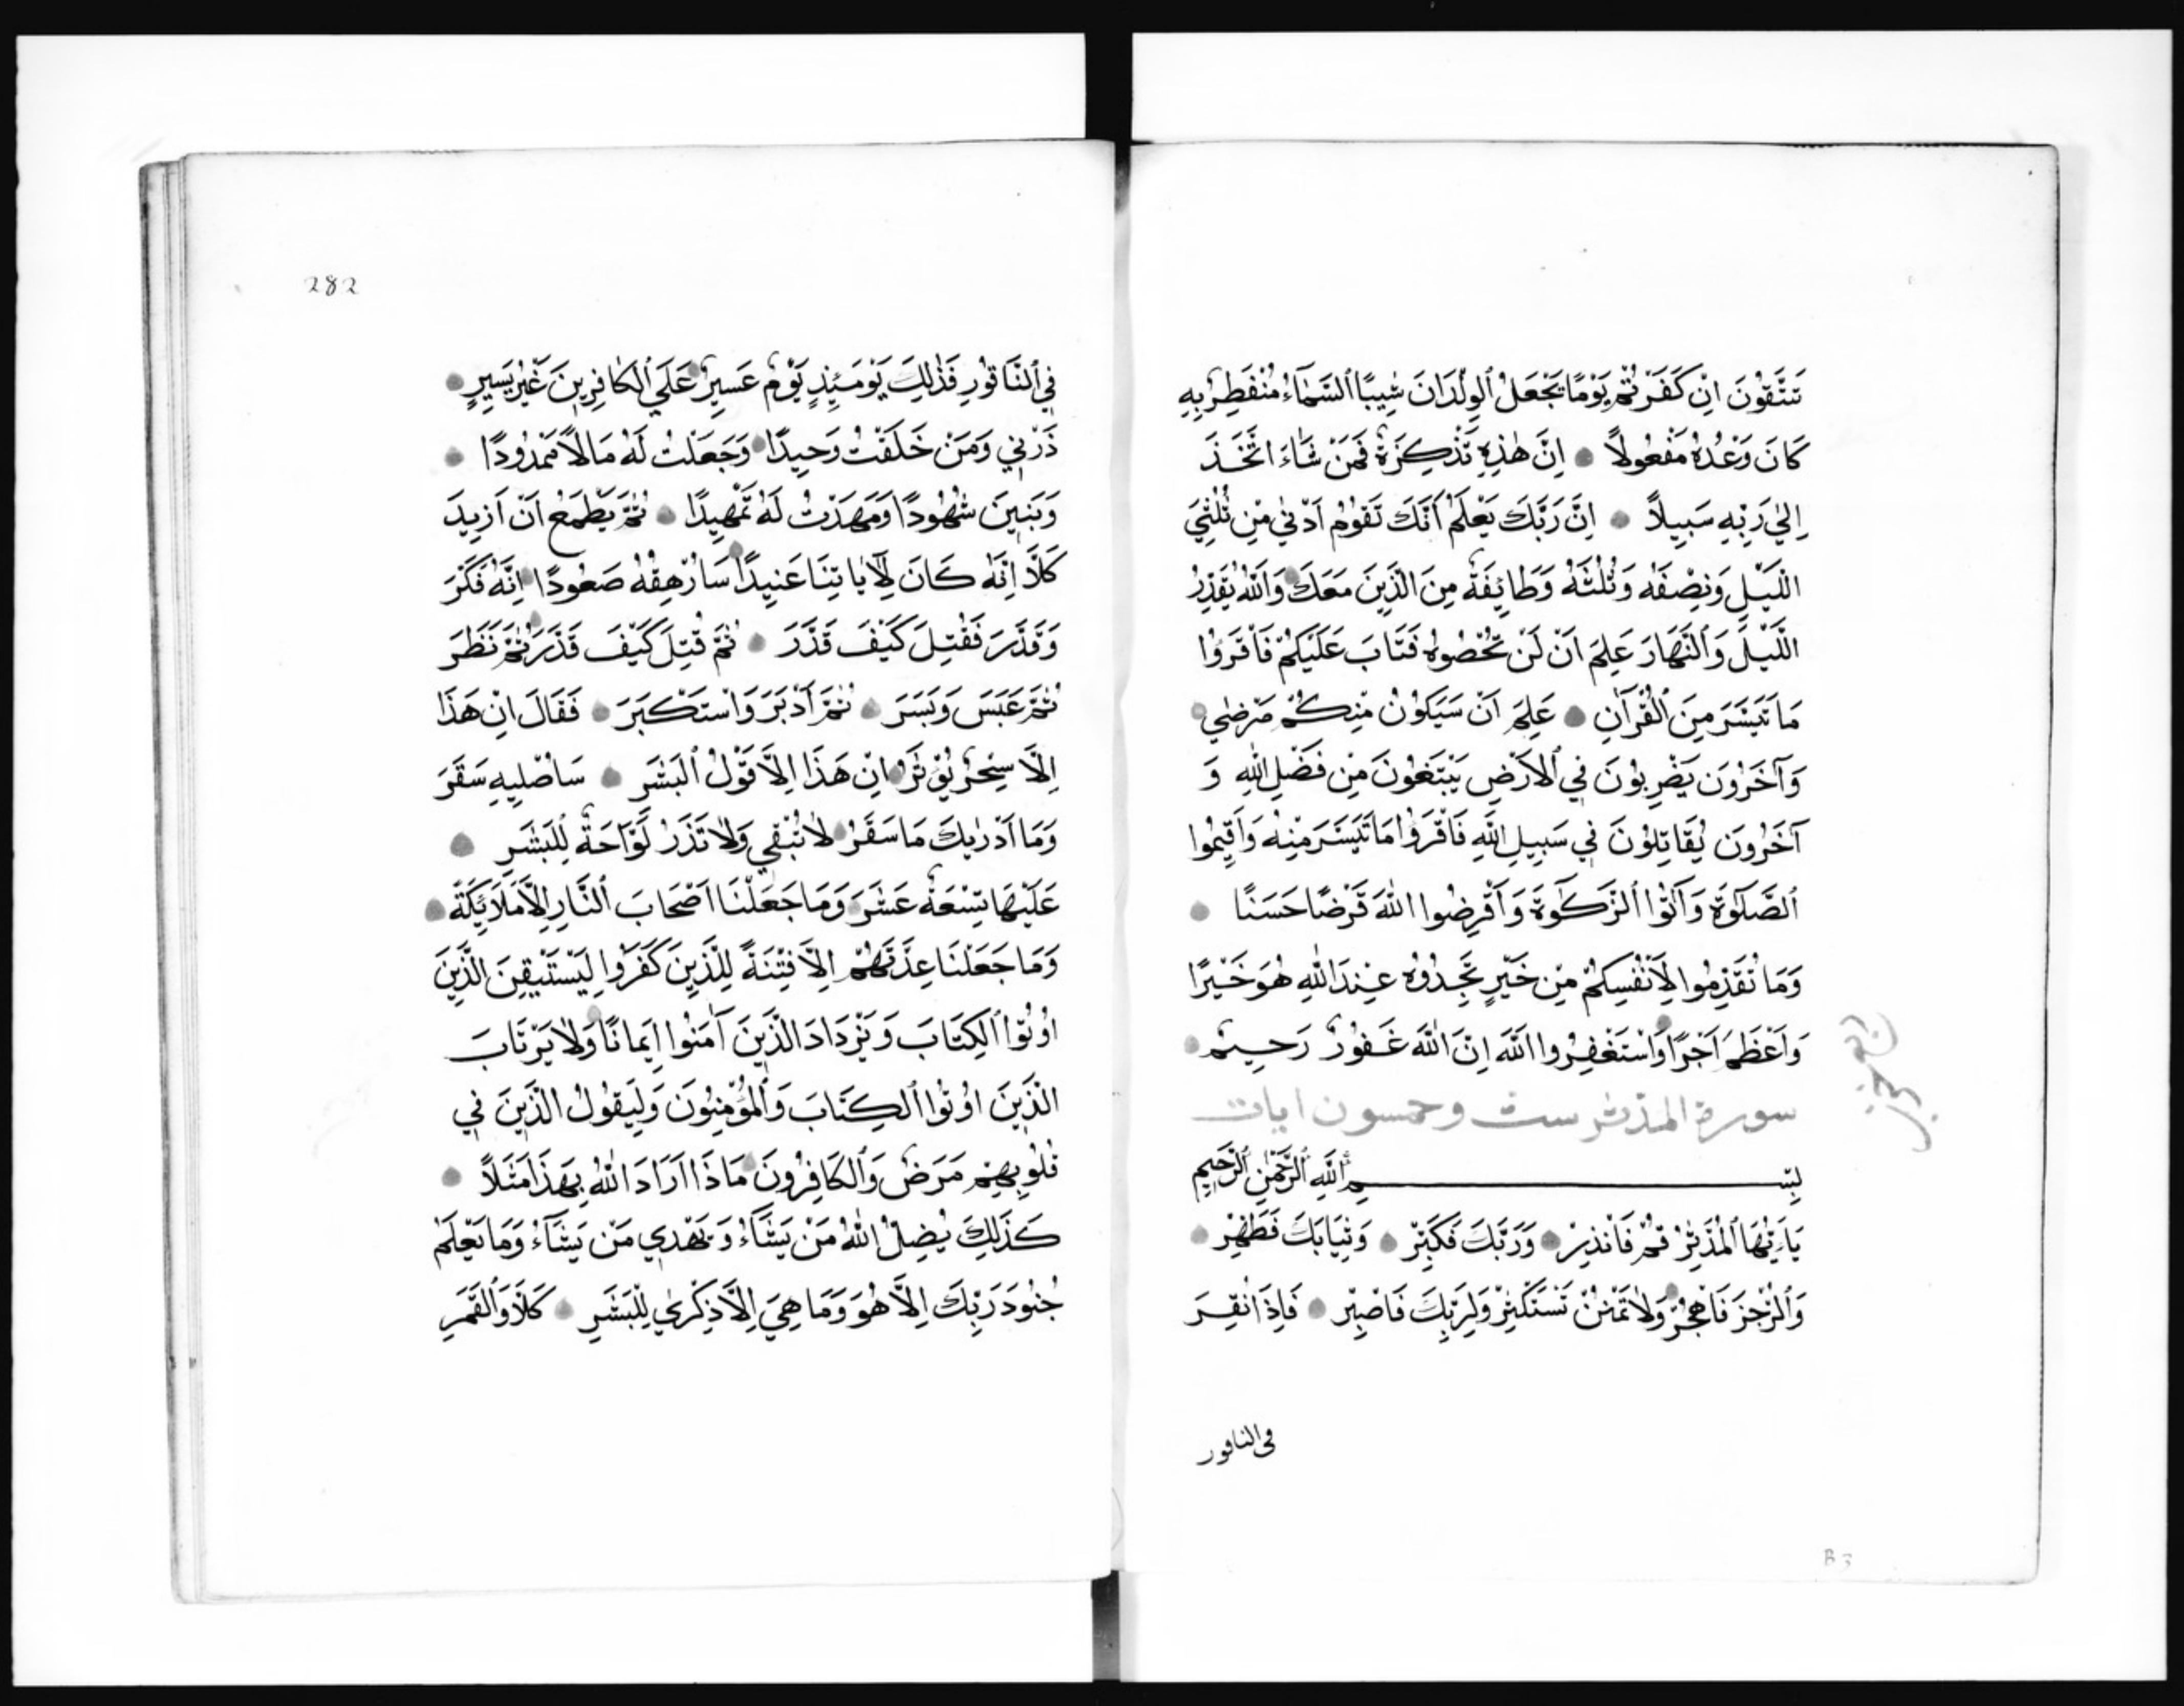 تَتَّقُونَ اِنْ كَفَرْتُمْ يَوْمًا يَجْعَلُ ٱلوِلْدَانَ شِيبًا ٱلسَّمَآءُ مُنْفَطِرٌ بِهِ
كَانَ وَعْدُهُ مَفْعُولاً اِنَّ هٰذِهِ تَذْكِرَةٌ فَمَنْ شَاءَ اتَّخَذَ
اِلٰي رَبِّهِ سَبِيلاً اِنَّ رَبَّكَ يَعْلَمُ اَنَّكَ تَقُومُ اَدْنٰي مِنْ ثُلُثِيَ
اللَّيْلِ وَنِصْفَهُ وَثُلُثَهُ وَطَائِفَةٌ مِنَ الَّذِينَ مَعَكَ وَاَللّٰهُ يُقَدِّرُ
اللَّيْلَ وَٱلنَّهَارَ عَلِمَ اَنْ لَنْ تُحْصُوهُ فَتَابَ عَلَيْكُمْ فَاْقْرَؤُا
مَا تَيَسَّرَ مِنَ ٱلْقُرْآنِ عَلِمَ اَنْ سَيَكُونُ مِنْكُمْ مَرْضٰي
وَآخَرُونَ يَضْرِبُونَ فِي ٱلاَرْضِ يَبْتَغُونَ مِنْ فَضْلِ اللّٰهِ وَ
آخَرُونَ يُقَاتِلُونَ فِي سَبِيلِ اللّٰهِ فَاقْرَؤُا مَا تَيَسَّرَ مِنْهُ وَاَقِيمُوا
ٱلصَّلَوٰةَ وَآتُوا ٱلزَّكَوٰةَ وَاَقْرِضُوا اللّٰهَ قَرْضًا حَسَنًا
وَمَا تُقَدِّمُوا لِاَنْفُسِكُمْ مِنْ خَيْرٍ تَجِدُوهُ عِنْدَ اللّٰهِ هُوَ خَيْرًا
وَاَعْظَمَ اَجْرًا وَاَسْتَغْفِرُوا اللّٰهَ اِنَّ اللّٰهَ غَفُورٌ رَحِيمٌ
سورة المدثر ست وخمسون ايات
بِسْمِ اللّٰهِ ٱلرَّحْمٰنِ ٱلرَّحِيمِ
يَاءَيُّهَا ٱلْمُدَّثِّرُ قُمْ فَاَنْذِرْ وَرَبَّكَ فَكَبِّرْ وَثِيَابَكَ فَطَهِّرْ
وَٱلرُّجْزَ فَاهْجُرْ وَلاَ تَمْنُنْ تَسْتَكْثِرُ وَلِرَبِّكَ فَاصْبِرْ فَاِذَا نُقِرَ
فى الناقور
B 3
282
فِي ٱلنَّاقُورِ فَذٰلِكَ يَوْمَئِذٍ يَوْمٌ عَسِيرٌ عَلَي ٱلكَافِرِينَ غَيْرُ يَسِيرٍ
ذَرْنِي وَمَنْ خَلَقْتُ وَحِيدًا وَجَعَلْتُ لَهُ مَالاً مَمْدُودًا
وَبَنِينَ شُهُودًا وَمَهَّدْتُ لَهُ تَمْهِيدًا ثُمَّ يَطْمَعُ اَنْ اَزِيدَ
كَلَّا اِنَّهُ كَانَ لِآيَاتِنَا عَنِيدًا سَاُرْهِقُهُ صَعُودًا اِنَّهُ فَكَّرَ
وَقَدَّرَ فَقُتِلَ كَيْفَ قَدَّرَ ثُمَّ قُتِلَ كَيْفَ قَدَّرَ ثُمَّ نَظَرَ
ثُمَّ عَبَسَ وَبَسَرَ ثُمَّ اَدْبَرَ وَاسْتَكْبَرَ فَقَالَ اِنْ هَذَا
اِلَّا سِحْرٌ يُؤْثَرُ اِنْ هَذَا اِلَّا قَوْلُ ٱلبَشَرِ سَاُصْلِيهِ سَقَرَ
وَمَا اَدْرٰيكَ مَا سَقَرُ لاَ تُبْقِي وَلاَ تَذَرُ لَوَّاحَةٌ لِلْبَشَرِ
عَلَيْهَا تِسْعَةَ عَشَرَ وَمَا جَعَلْنَا اَصْحَابَ ٱلنَّارِ اِلاَّ مَلاَئِكَةً
وَمَا جَعَلْنَا عِدَّتَهُمْ اِلاَّ فِتْنَةً لِلَّذِينَ كَفَرُوا لِيَسْتَيْقِنَ الَّذِينَ
اُوتُوا ٱلكِتَابَ وَيَزْدَادَ الَّذِينَ آمَنُوا اِيمَانًا وَلاَ يَرْتَابَ
الَّذِينَ اُوتُوا ٱلكِتَابَ وَٱلمُؤْمِنُونَ وَلِيَقُولُ الَّذِينَ فِي
قُلُوبِهِمْ مَرَضٌ وَٱلكَافِرُونَ مَاذَا اَرَادَ اللّٰهُ بِهَذَا مَثَلاً
كَذَلِكَ يُضِلُّ اللّٰهُ مَنْ يَشَآءُ وَيَهْدِي مَنْ يَشَآءُ وَمَا يَعْلَمُ
جُنُودَ رَبِّكَ اِلاَّ هُوَ وَمَا هِيَ اِلاَّ ذِكْرٰي لِلْبَشَرِ كَلَّا وَٱلْقَمَرِ